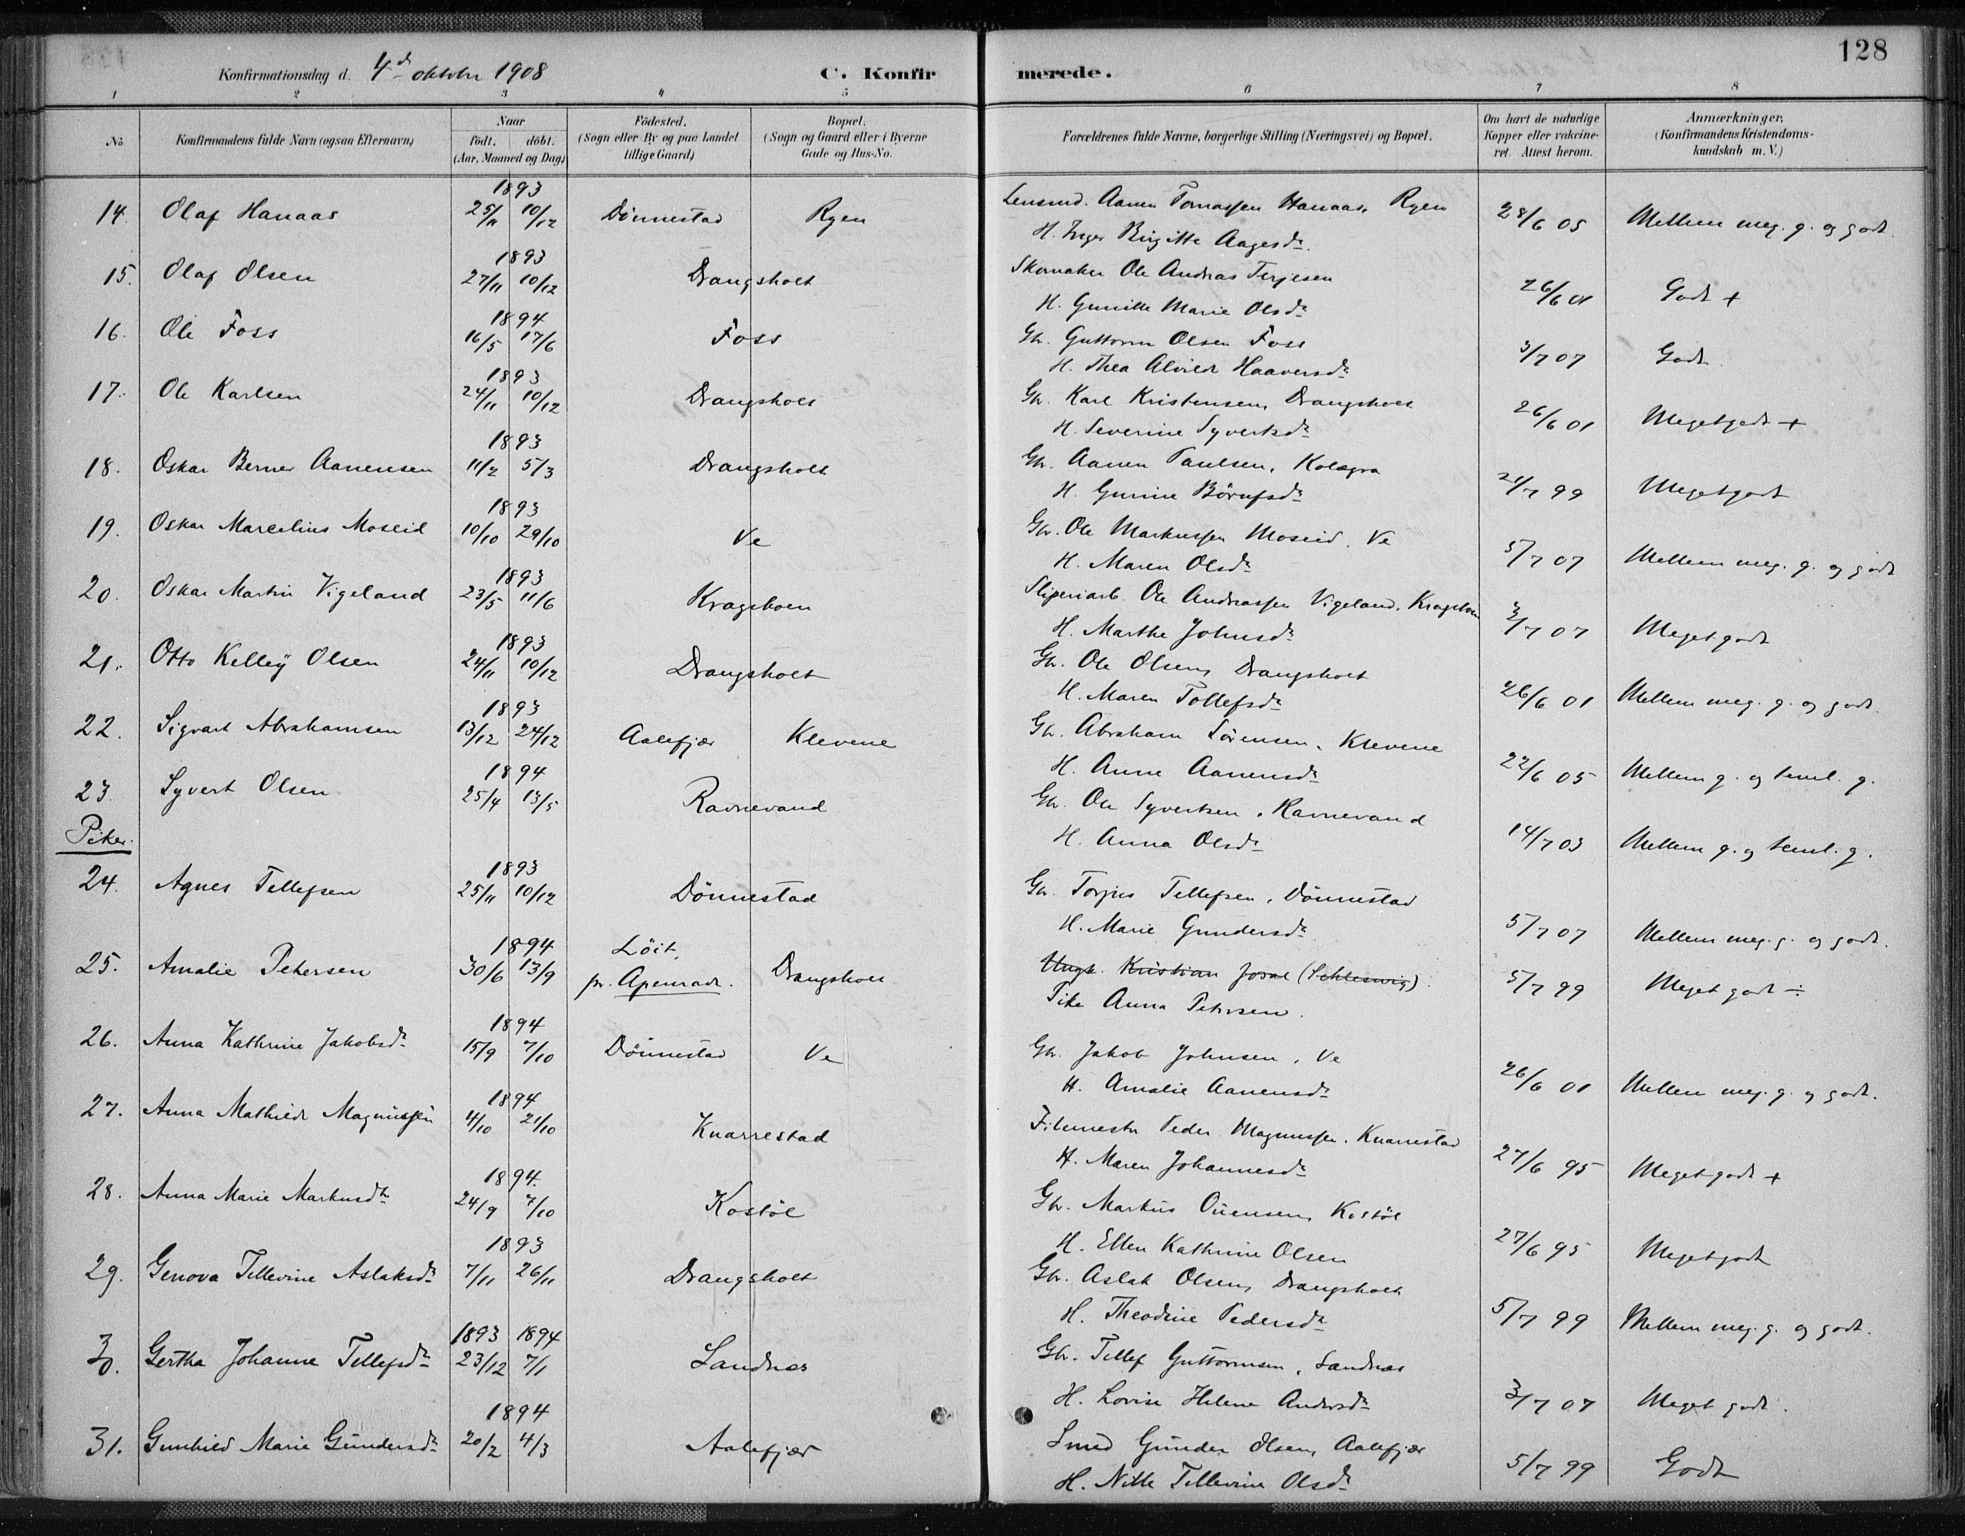 128
Konfirmationsdag d. 4de oktober 1908 C. Konfirmerede.
1 2 3 4 5 6 7 8
No
Konfirmandens fulde Navn (ogsaa Efternavn)
Naar
födt. döbt.
(Aar, Maaned og Dag)
Födested.
(Sogn eller By og paa Landet
tillige Gaard)
Bopæl.
(Sogn og Gaard eller i Byerne
Gade og Hus-No.
Forældrenes fulde Navne, borgerlige Stilling (Næringsvei) og Bopæl.
Om havt de naturlige
Kopper eller vakcine-
ret. Attest herom.
Anmærkninger.
(Konfirmandens Kristendoms-
kundskab m. V.)
1893
14. Olaf Hanaas 25/11 10/12 Dönnestad Ryen Lensmd. Aanen Tomassen Hanaas, Ryen 28/6 05 Mellem meg. g. og godt.
H. Inger Birgitte Aagesdr.
1893
15. Olaf Olsen 27/11 10/12 Drangsholt Skomaker Ole Andreas Terjesen 26/6 01 Godt +
H. Gunille Marie Olsdr
1894
16. Ole Foss 16/5 17/6 Foss Gbr. Guttorm Olsen Foss 3/7 07 Godt.
H. Thea Alvilde Haaversdr
1893
17. Ole Karlsen 24/11 10/12 Drangsholt Gbr. Karl Kristensen, Drangsholt 26/6 01 Megetgodt +
H. Severine Syvertsdr
1893
18. Oskar Berner Aanensen 11/2 5/3 Drangsholt Gbr. Aanen Paulsen, 21/7 99 Megetgodt
H. Gurine
1893
19. Oskar Marcelius Moseid 10/10 29/10 Ve Gbr. Ole Markussen Moseid. Ve 5/7 07 Mellem meg. g. og godt
H. Maren Olsdr
1893
20. Oskar Martin Vigeland 23/5 11/6 Krageboen Sliperiarb. Ole Andreassen Vigeland, Krageboen 3/7 07 Meget godt
H. Marthe Johnsdr
1893
21. Otto Kelley Olsen 24/11 10/12 Drangsholt Gbr. Ole Olsen, Drangsholt 26/6 01 Mellem meg. g. og godt.
H. Maren Tollefsdr
1893
22. Sigvart Abrahamsen 13/12 24/12 Aalefjær Klevene Gbr. Abraham Sörensen, Klevene 22/6 05 Mellem g. og teml. g.
H. Anne Aanensdr
1894
23. Syvert Olsen 25/4 13/5 Ravnevand Gbr. Ole Syvertsen, Ravnevand 14/7 03 Mellem g. og teml. g.
H. Anna Olsdr
Piker.
1893
24. Agnes Tellefsen 25/11 10/12 Dönnestad Gbr. Torjus Tellefsen, Dönnestad 5/7 07 Mellem meg. g. og godt.
H. Marie Gundersdr
1894
25. Amalie Petersen 30/6 13/9 Löit, pr. Apenrade. Drangsholt Ungk. Kristian (Schleswig). 5/7 99 Meget godt ÷
Pike Anna Petersen.
1894
26. Anna Kathrine Jakobsdr 15/9 7/10 Dönnestad Ve Gbr. Jakob Johnsen, Ve 26/6 01 Mellem meg. g. og godt.
H. Amalie Aanensdr
1894
27. Anna Mathilde Magnussen 4/10 21/10 Knarrestad Peder Magnussen. Knarrestad 27/6 95 Megetgodt +
H. Maren Johannesdr
1894.
28. Anna Marie Markusdtr 24/9 7/10 Kostöl Gbr. Markus Ouensen, Kostöl 27/6 95 Megetgodt
H. Ellen Kathrine Olsen
1893
29. Genova Tellevine Aslaksdr 7/11 26/11 Drangsholt Gbr. Aslak Olsen, Drangsholt 5/7 99 Mellem meg. g. og godt.
H. Theodine Pedersdr
1893 1894
30. Gertha Johanne Tellefsdr 23/12 7/1 Sandnes Gbr. Tellef Guttormsen, Sandnes 3/7 07 Meget godt.
H. Lovise Helene Andersdr
1894
31. Gunhild Marie Gundersdr 20/2 4/3 Aalefjær Smed Gunder Olsen, Aalefjær 5/7 99 Godt
H. Nille Tellevine Olsdr